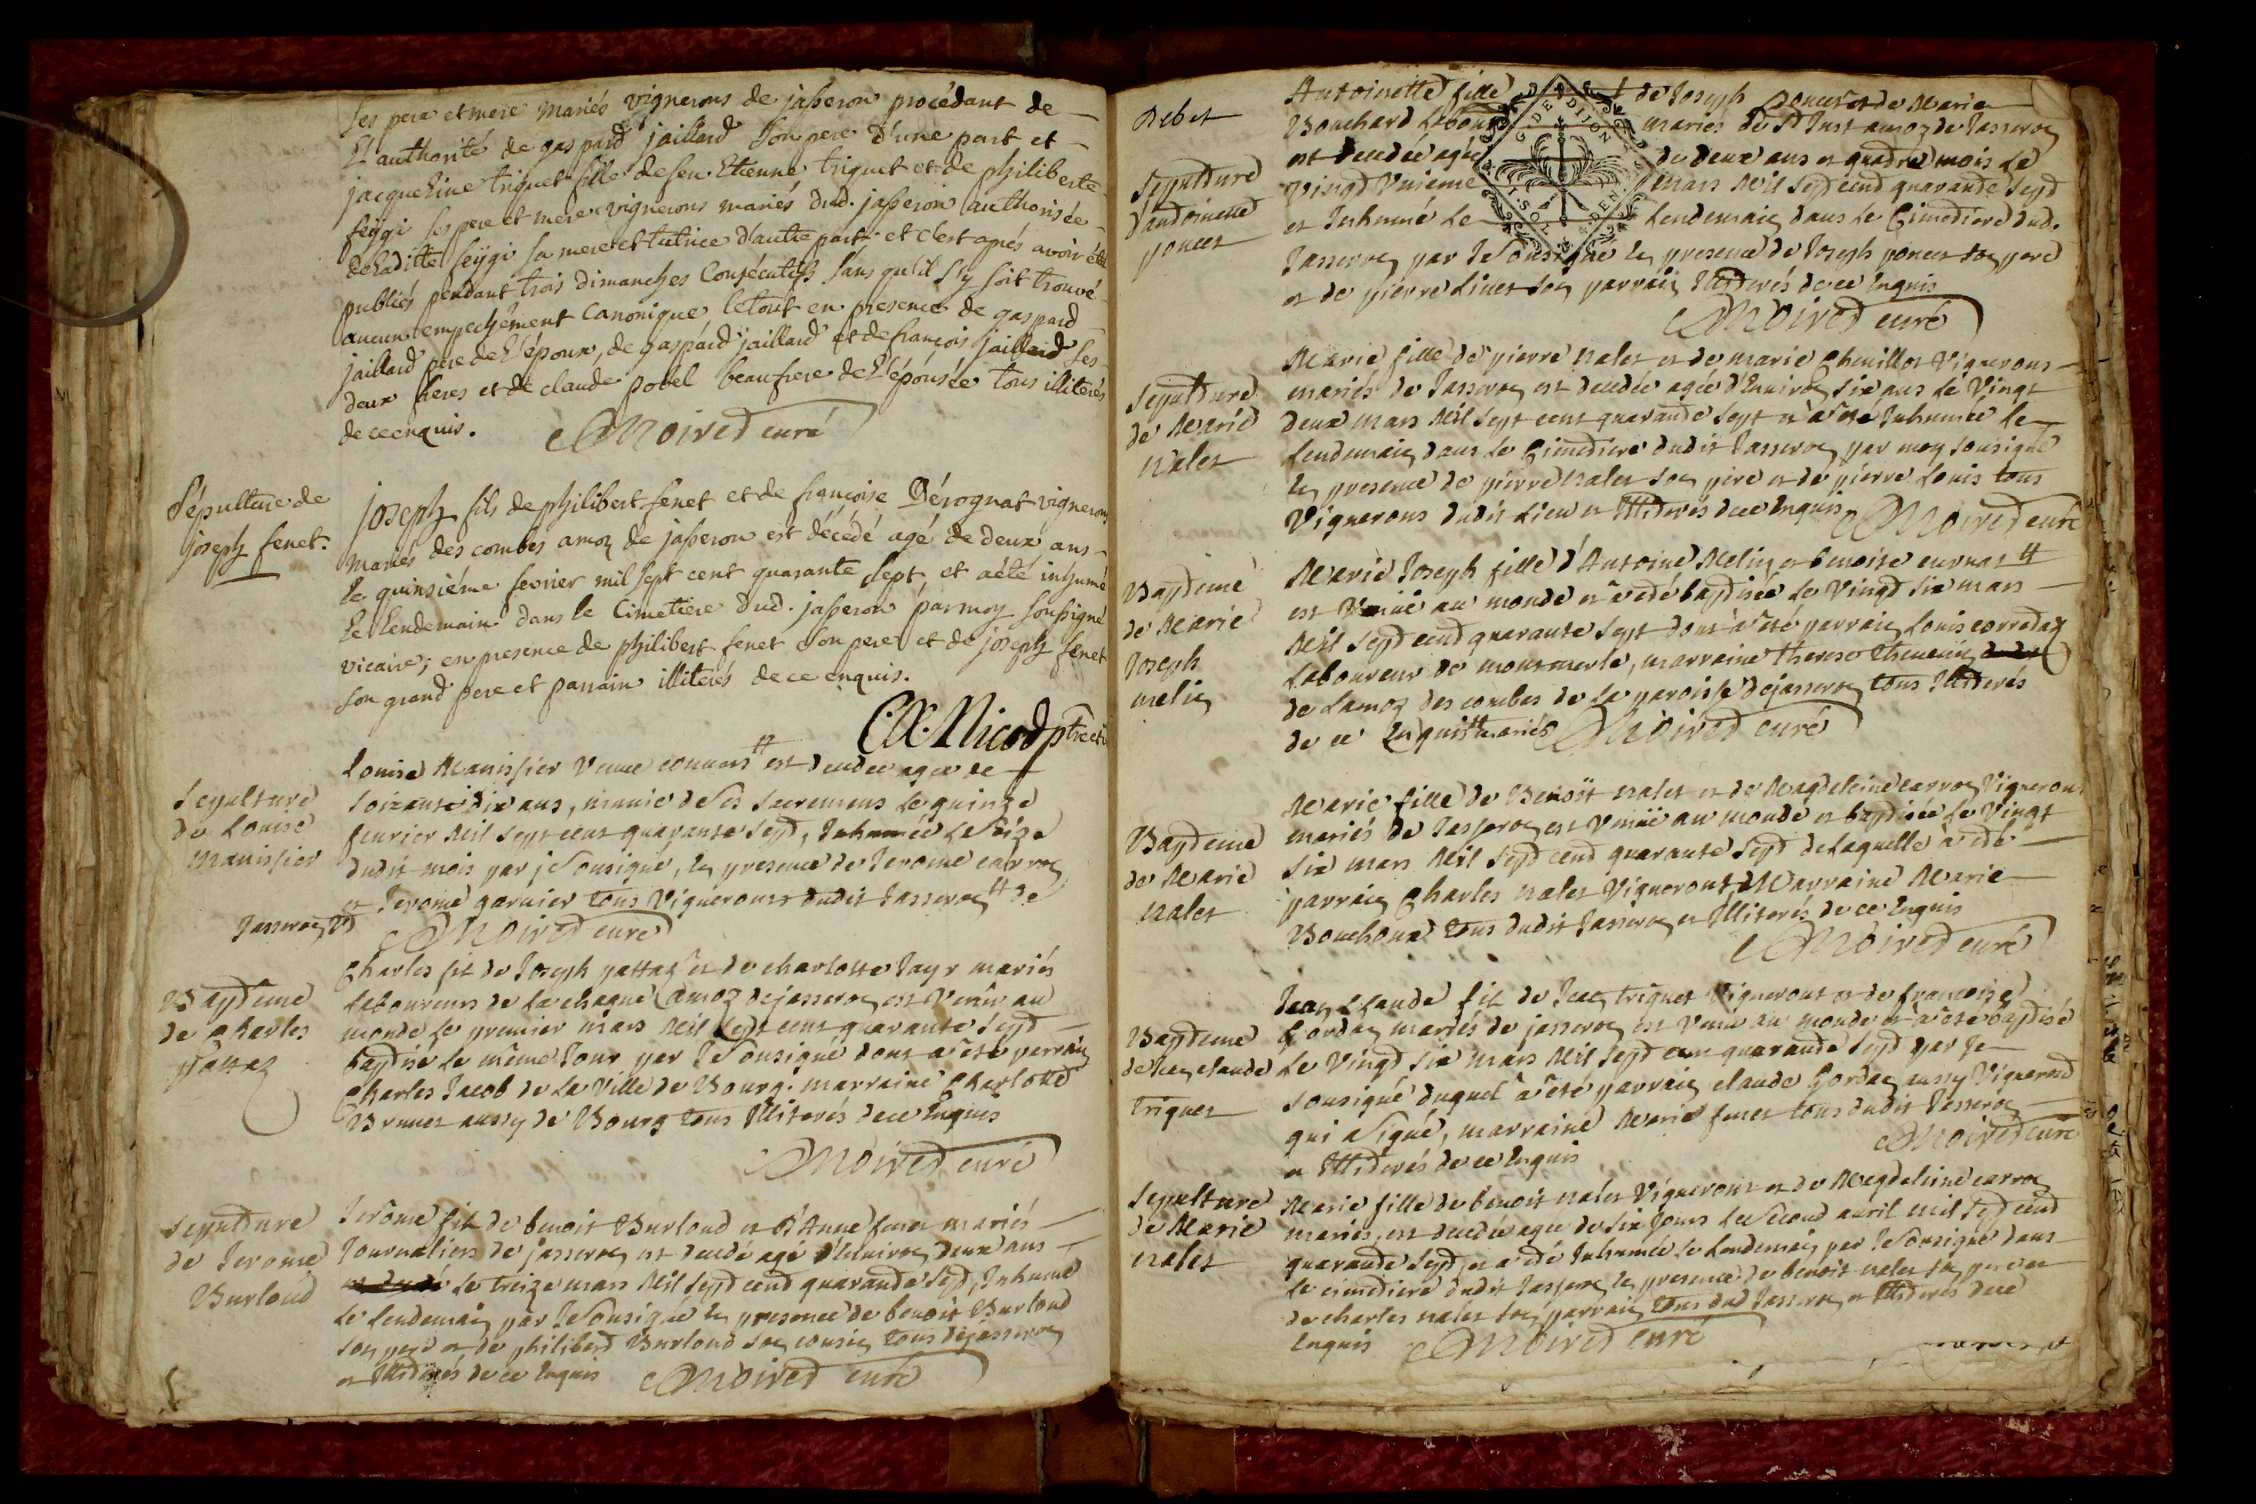 ses pere et mere mariés vignerons de jasseron procédant de
l'authorité de gaspard jaillard son pere d'une part, et
jacqueline triquet fille de feu Etienne triquet et de philiberte
feÿgi ses pere et mere vignerons mariés dud. jasseron authorisée
de laditte feÿgi sa mere et tutrice d'autre part, et c'est aprés avoir été
publiés pendant trois dimanches consécutifs sans qu'il s'y soit trouvé
aucun empechément canonique le tout en presence de gaspard
jaillard pere de l'époux, de gaspard jaillard et de françois jaillard ses
deux freres et de claude pobel beaufrere de l'épousée tous illiterés
de ce enquis. Moired curé
Sépulture de
joseph fenet.
joseph fils de philibert fenet et de françoise Dérognat vignerons
mariés des combes amoz de jasseron est décédé agé de deux ans
le quinsiéme fevrier mil sept cent quarante sept, et a été inhumé
le lendemain dans le cimetiere dud. jasseron par moy soussigné
vicaire; en presence de philibert fenet son pere et de joseph fenet
son grand pere et parrain illiterés de ce enquis.
Nicod ptre
Sepulture
de Louise
Manissier
Louise Manissier veuve est decedee agee de
soixante dix ans, munie de ses sacremens le quinze
feurier mil sept cent quarante sept, Inhumée le seize
dudit mois par je sousigné, en presence de Jerome carron
et Jerome garnier tous Vignerons dudit Jasseron de
Jasseron
Moired curé
Bapteme
de Charles
pattaz
Charles fil de Joseph pattaz et de charlotte Jayr mariés
Laboureurs de la chagne amoz de jasseron est Venu au
monde le premier mars mil sept cent quarante sept
baptisé le même Jour par Je sousigné dont a esté parrain
Charles Jacob de la Ville de Bourg. marraine Charlotte
Brunet aussy de Bourg tous Illiterés de ce Enquis
Moired curé
Sepulture
de Jerome
Burloud
Jerôme fil de benoit Burloud et d'Anne fenet mariés
Journaliers de jasseron est decedé agé d'Enuiron deux ans
le treize mars mil sept cent quarante sept, Inhumé
le lendemain par Je sousigné en presence de benoit Burloud
son pere et de philibert Burloud son cousin tous de jasseron
et Illiterés de ce Enquis Moired curé
Debet
Sepulture
d'antoinette
poncet
Antoinette fille de Joseph poncet et de Marie
Bouchard mariés de St Just amoz de Jasseron
est decedée agée de deux ans et quatre mois le
Vingt Unieme mars Mil sept cent quarante sept
et Inhumé le lendemain dans le Cimetiere dud.
G. D. DIJON
Jasseron par Je sousigné en presence de Joseph poncet son pere
et de pierre Liuet son parrain Illiterés de ce Enquis
Moired curé
Sepulture
de Marie
nalet
Marie fille de pierre nalet et de marie Chouillot Vignerons
mariés de Jasseron est decedée agée d'Enuiron six ans le Vingt
deux mars Mil sept cent quarante sept et a esté Inhumée le
lendemain dans le Cimetiere dudit Jasseron par moy sousigné
en presence de pierre nalet son pere et de pierre Louis tous
Vignerons dudit Lieu et Illiterés de ce Enquis Moired curé
Baptemé
de Marie
Joseph
melin
Marie Joseph fille d'Antoine Melin et benoite curnat
est Venüe au monde et a eté baptisée le Vingt six mars
Mil sept cent quarante sept dont a esté parrain Louis corredaz
Laboureur de montmerle, marraine therese theuenin
de Lamoz des combes de la paroisse de jasseron tous Illiterés
de ce Enquis mariés Moired curé
Bapteme
de Marie
nalet
Marie fille de Benoit nalet et de Magdeleine carron Vignerons
mariés de Jasseron est Venüe au monde et baptisée le Vingt
six mars Mil sept cent quarante sept de laquelle a eté
parrain Charles nalet Vigneront, Marraine Marie
Bouchoux tous dudit Jasseron et Illiterés de ce Enquis
Moired curé
Bapteme
de Jean claude
triquet
Jean Claude fil de Jean triquet Vigneront et de francoise
Gordan mariés de jasseron est Venu au monde et a esté baptisé
le Vingt six mars Mil sept cent quarante sept par Je
sousigné duquel a esté parrain claude Gordan aussy Vigneront
qui a signé, marraine Marie fenet tous dudit Jasseron
et Illiterés de ce Enquis
Moired curé
Sepulture
de Marie
nalet
Marie fille de benoit nalet Vigneront et de Magdeleine carron
mariés, est decedée agee de six Jours le second auril mil sept cent
quarante sept, et a eté Inhumée le lendemain par Je sousigné dans
le cimetiere dudit Jasseron en presence de benoit nalet son pere et
de charles nalet son parrain tous dud Jasseron et Illiterés de ce
Enquis Moired curé